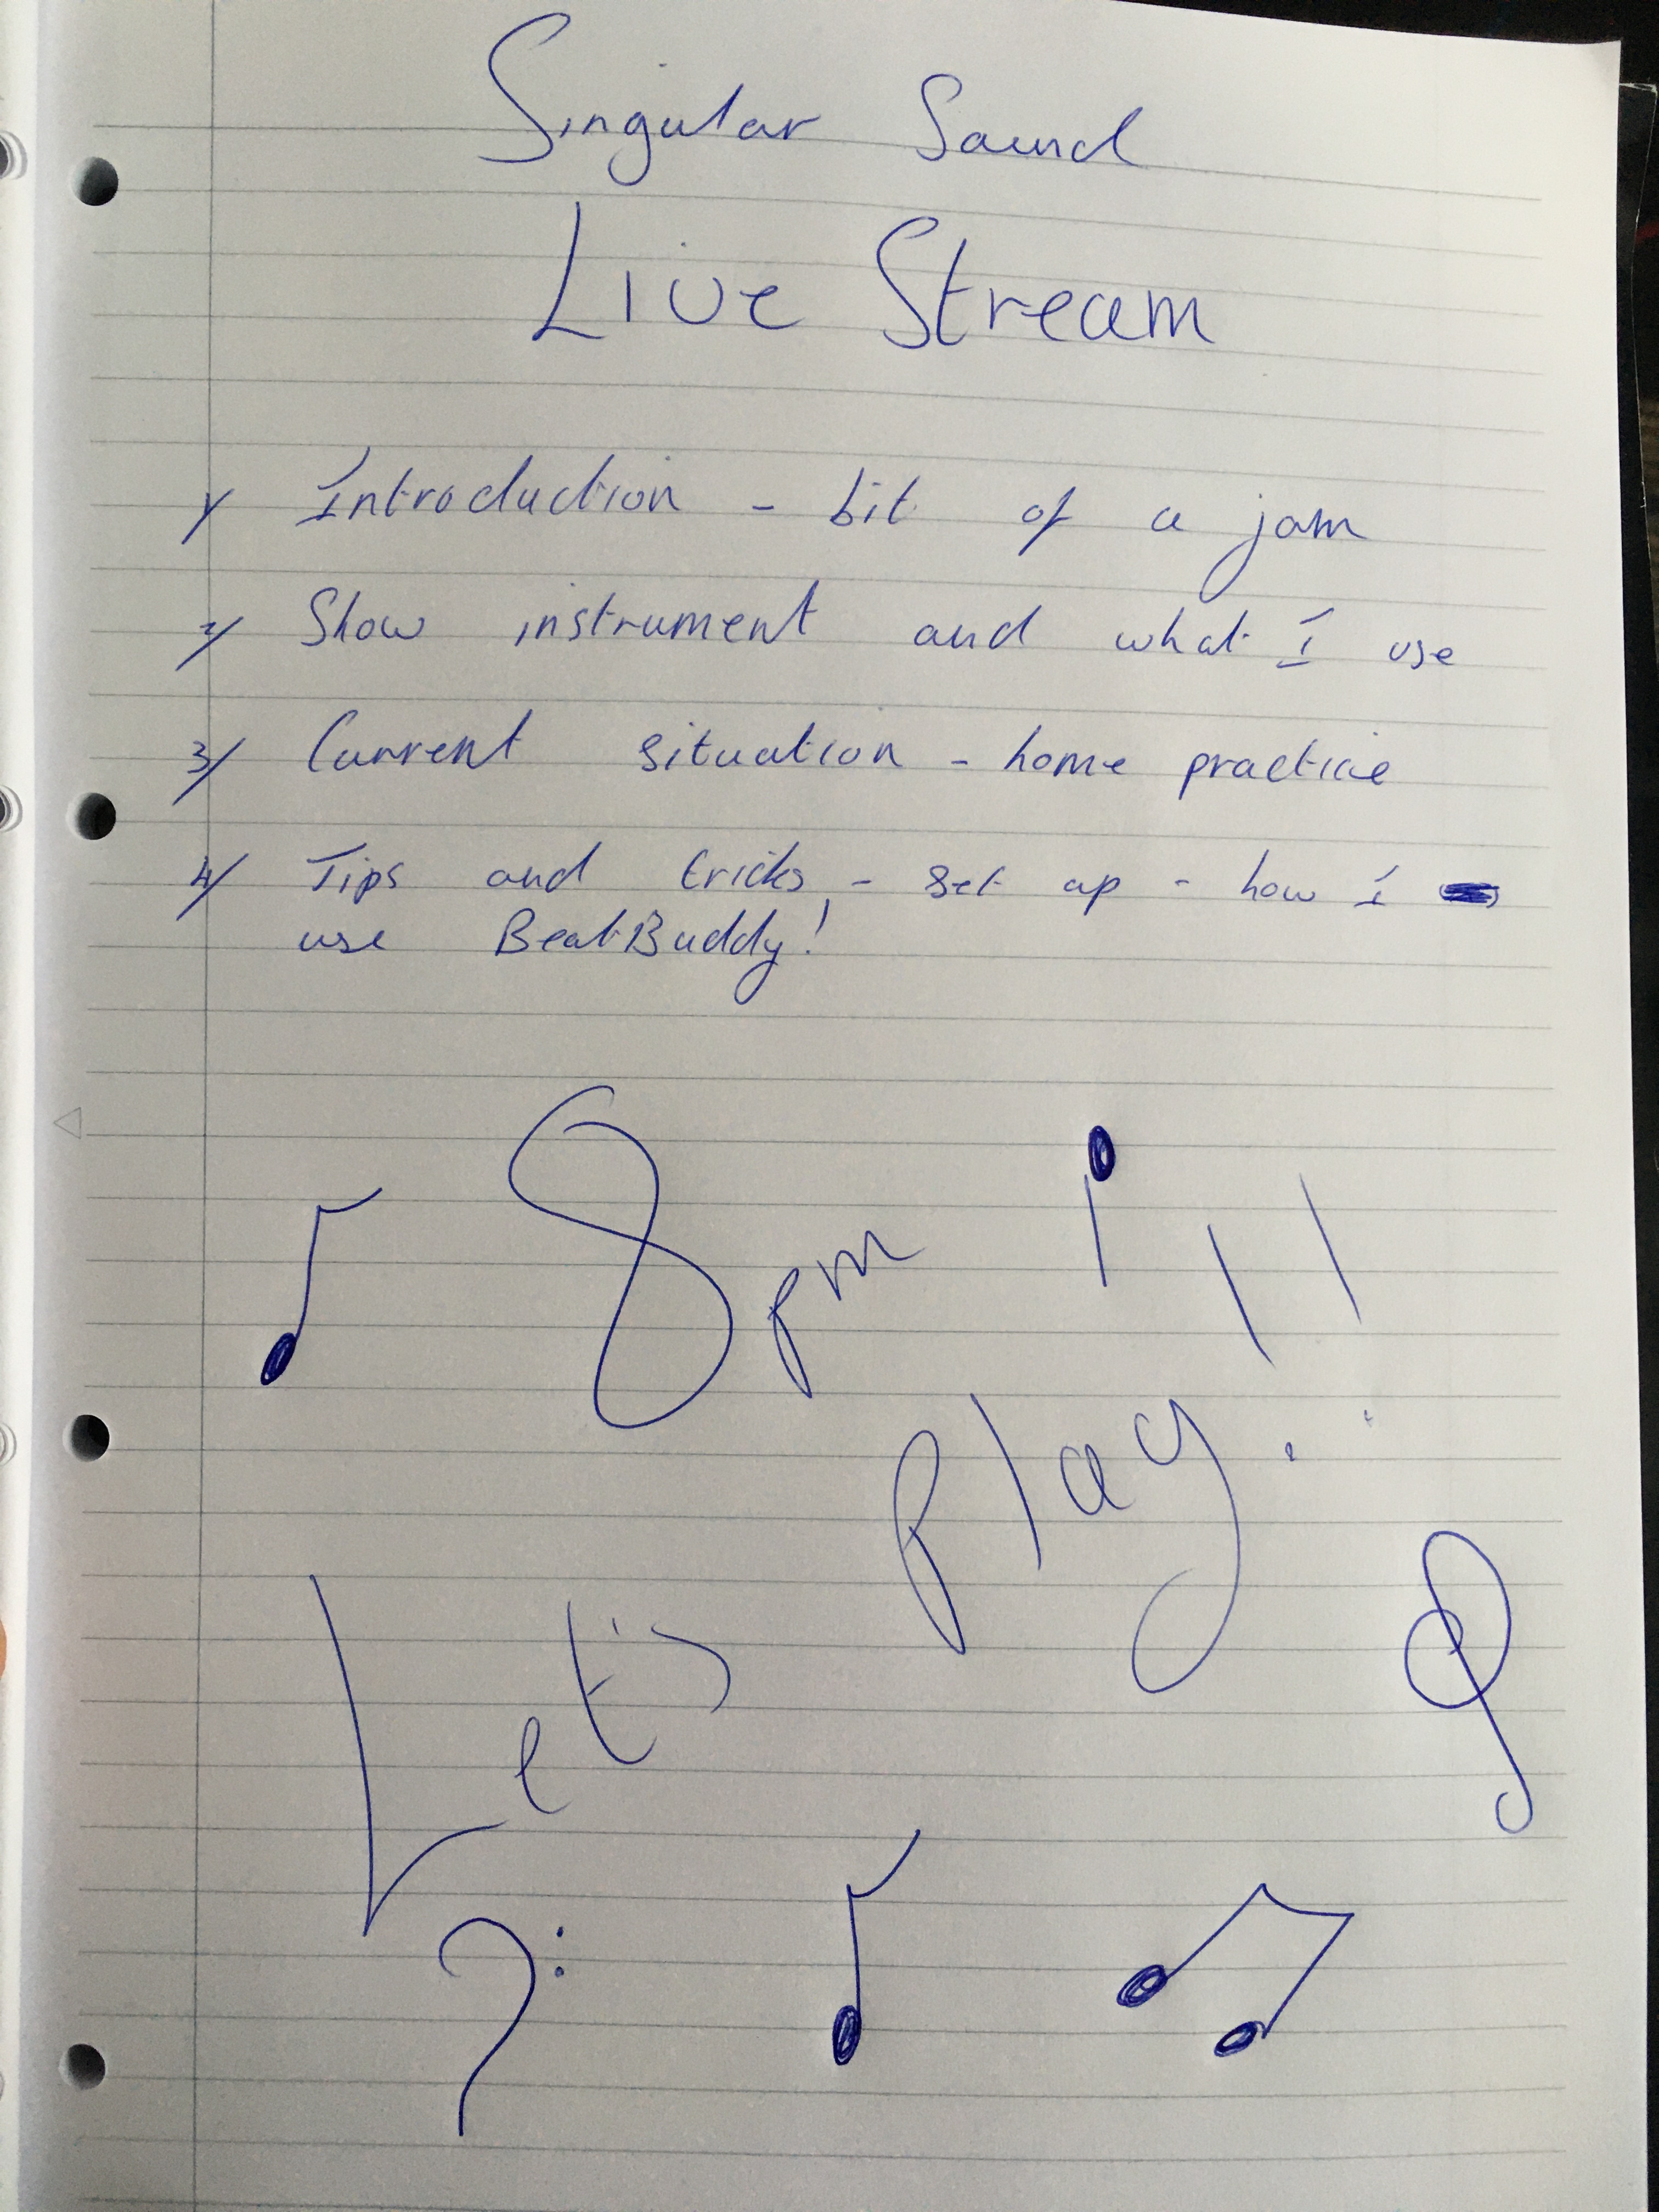 Singular Sound
Live Stream
1/ Introduction - bit of a jam
2/ Show instrument and what I use
3/ Current situation - home practice
4/ Tips and tricks - set up - how I
use BeatBuddy!
8pm
Let's play!!